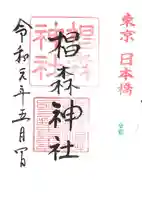 東京 日本橋
椙森神社
令和元年五月四日